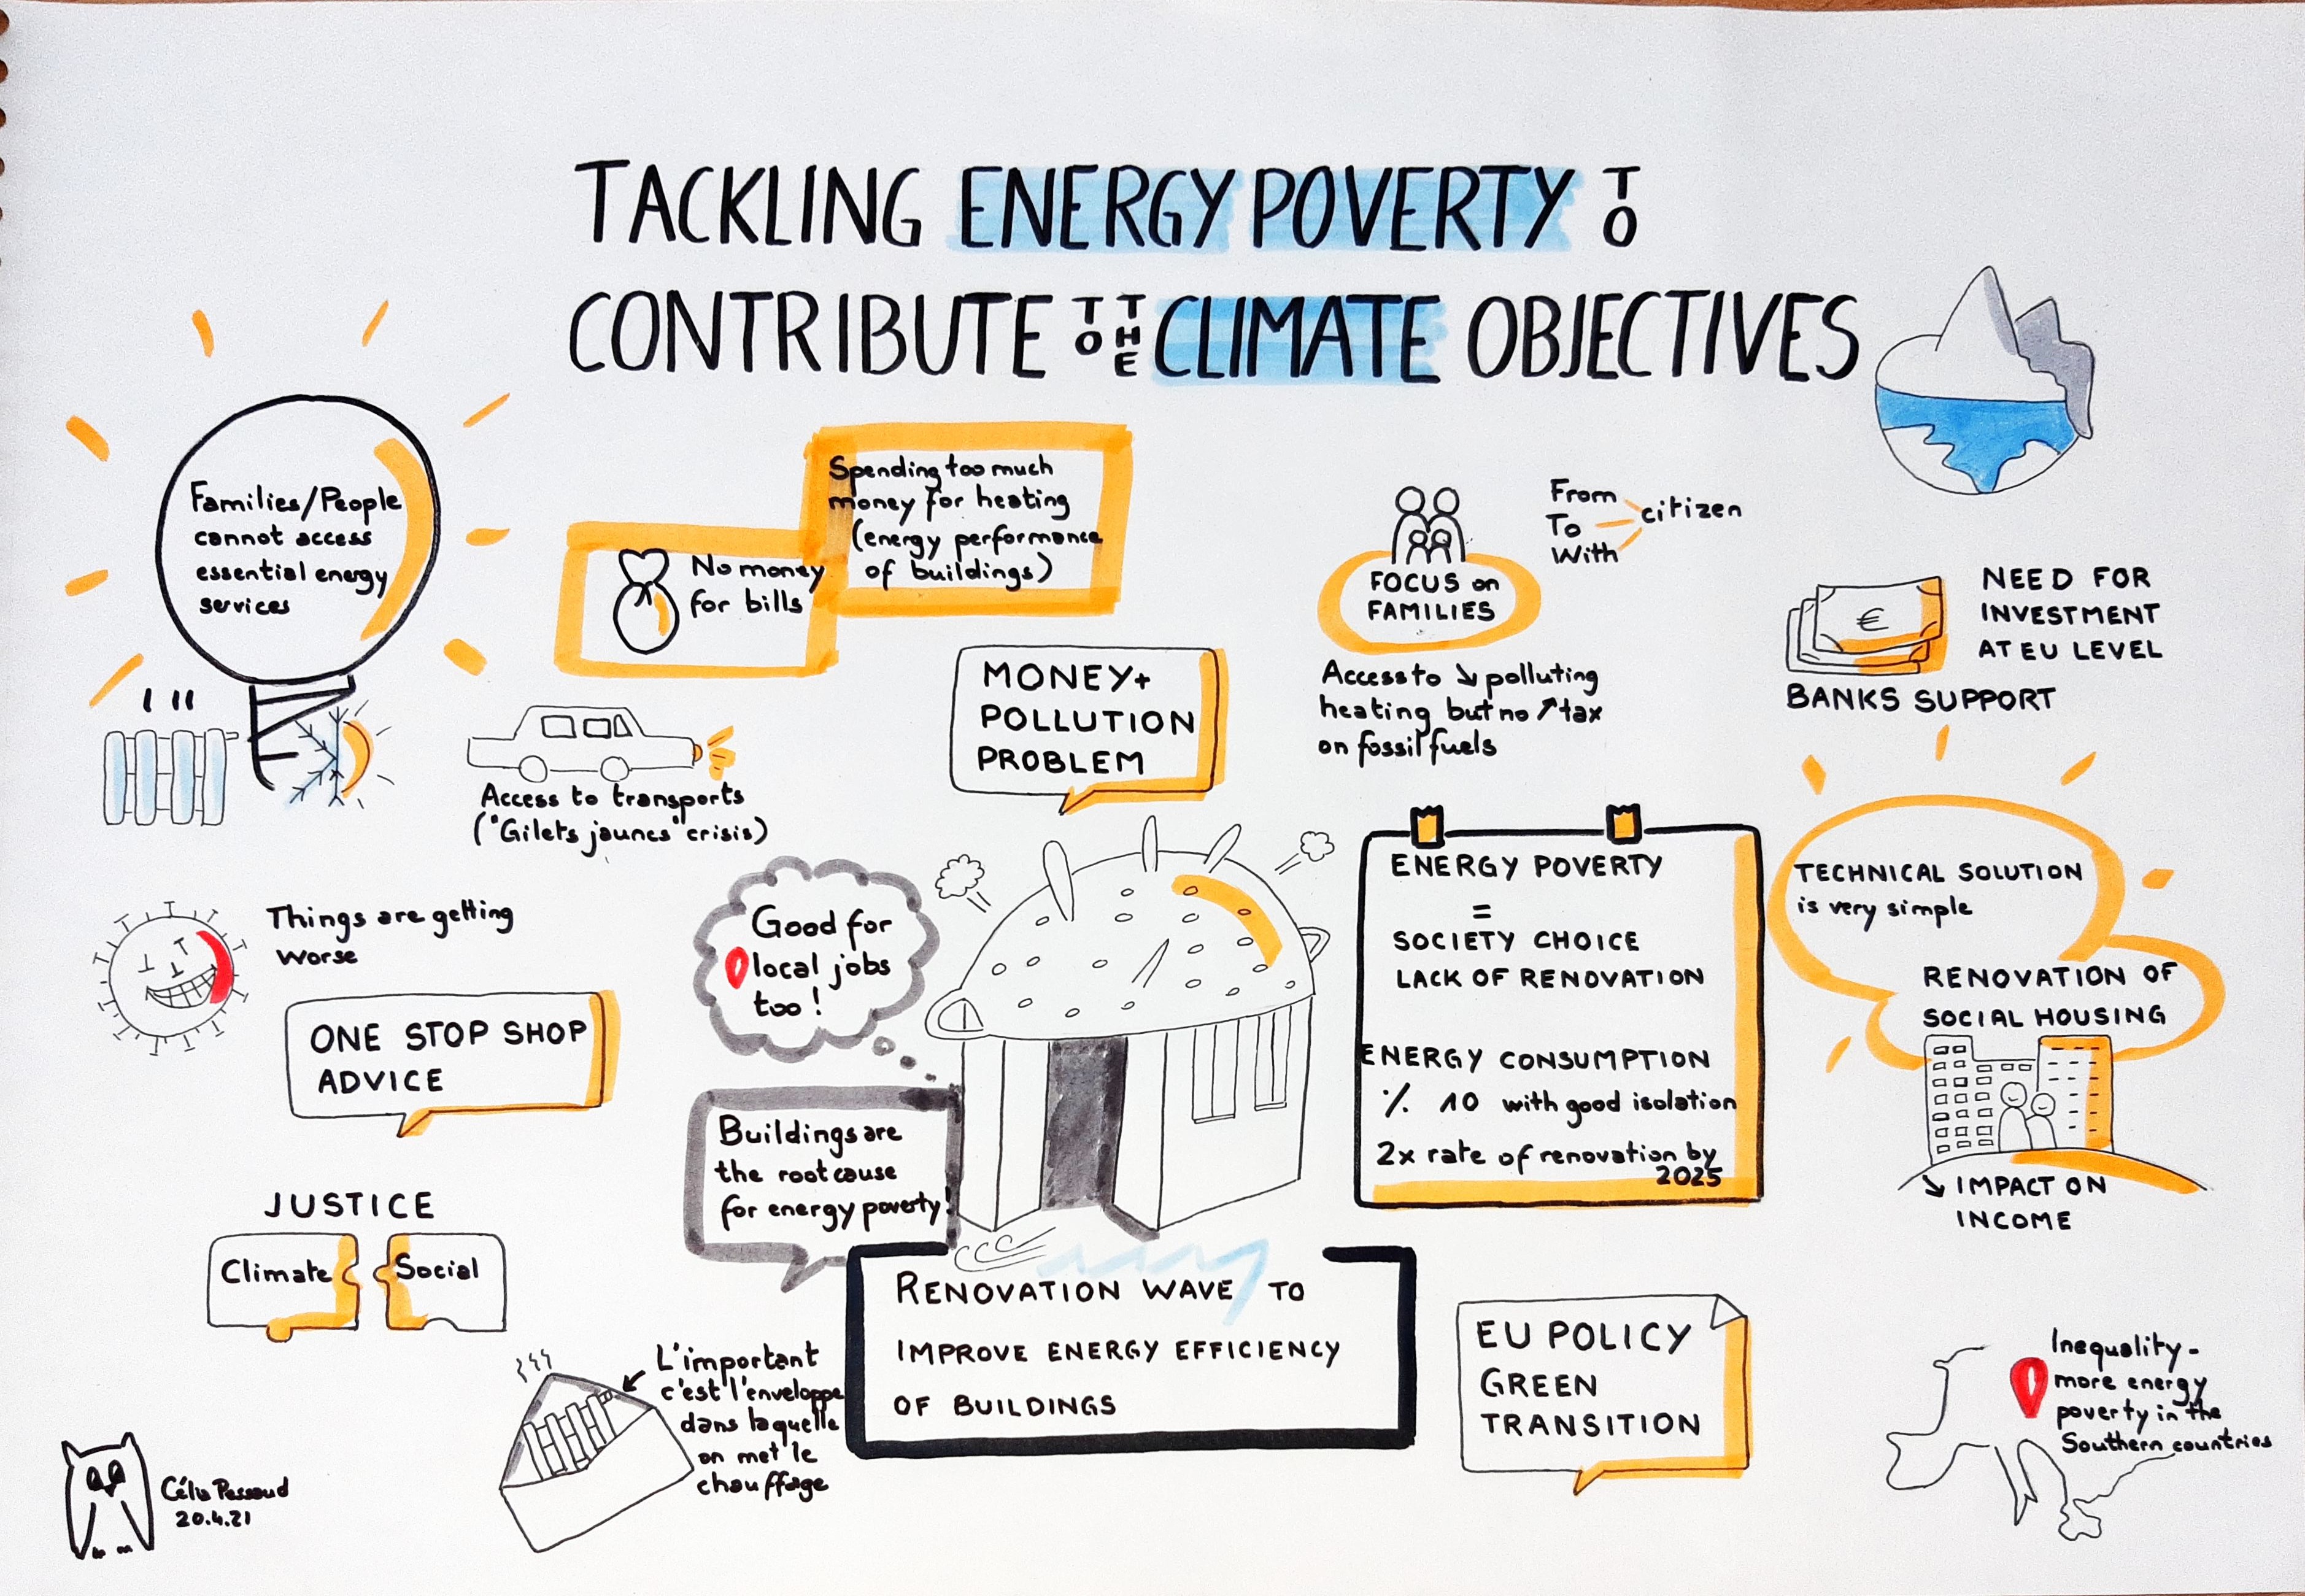 TACKLING ENERGY POVERTY TO
CONTRIBUTE TO THE CLIMATE OBJECTIVES
Families/People
cannot access
essential energy
services
No money
for bills
Spending too much
money for heating
(energy performance
of buildings)
FOCUS on
FAMILIES
From
To
With
citizen
Access to ↘ polluting
heating but no ↗ tax
on fossil fuels
€
NEED FOR
INVESTMENT
AT EU LEVEL
BANKS SUPPORT
MONEY+
POLLUTION
PROBLEM
Access to transports
("Gilets jaunes" crisis)
Things are getting
worse
ONE STOP SHOP
ADVICE
Good for
local jobs
too!
Buildings are
the root cause
for energy poverty!
ENERGY POVERTY
=
SOCIETY CHOICE
LACK OF RENOVATION
ENERGY CONSUMPTION
% 10 with good isolation
2x rate of renovation by
2025
TECHNICAL SOLUTION
is very simple
RENOVATION OF
SOCIAL HOUSING
↘ IMPACT ON
INCOME
JUSTICE
Climate
Social
L'important
c'est l'enveloppe
dans laquelle
on met le
chauffage
RENOVATION WAVE TO
IMPROVE ENERGY EFFICIENCY
OF BUILDINGS
EU POLICY
GREEN
TRANSITION
Inequality -
more energy
poverty in the
Southern countries
Célia
20.4.21